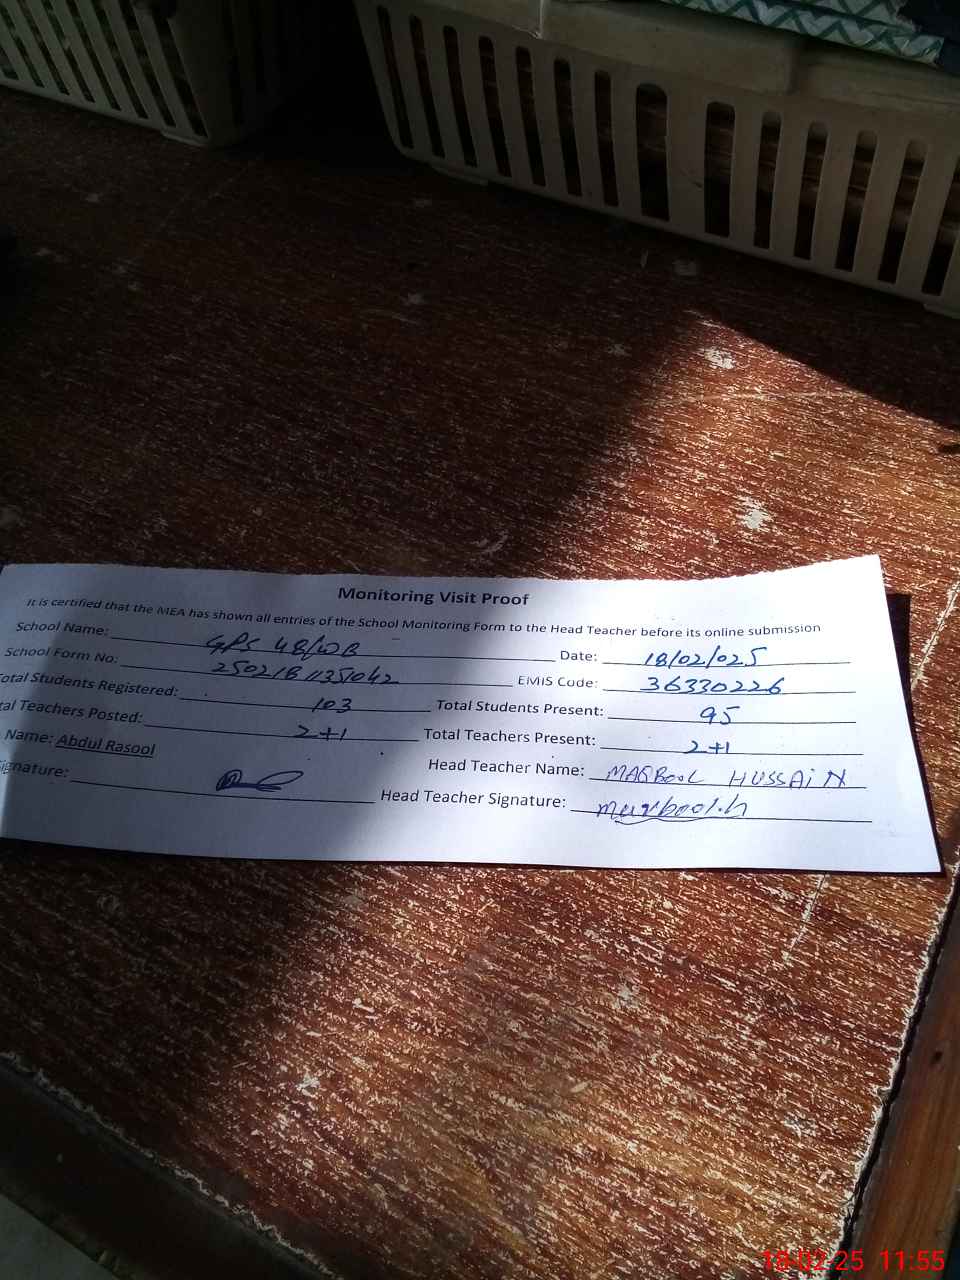 Monitoring Visit Proof
It is certified that the MEA has shown all entries of the School Monitoring Form to the Head Teacher before its online submission
School Name: GPS 48/WB Date: 18/02/025
School Form No: 250218 11351042 EMIS Code: 36330226
Total Students Registered: 103 Total Students Present: 95
tal Teachers Posted: 2+1 Total Teachers Present: 2+1
Name: Abdul Rasool Head Teacher Name: MAQBOOL HUSSAIN
Signature: Head Teacher Signature: maqbool.h
18-02-25 11:55